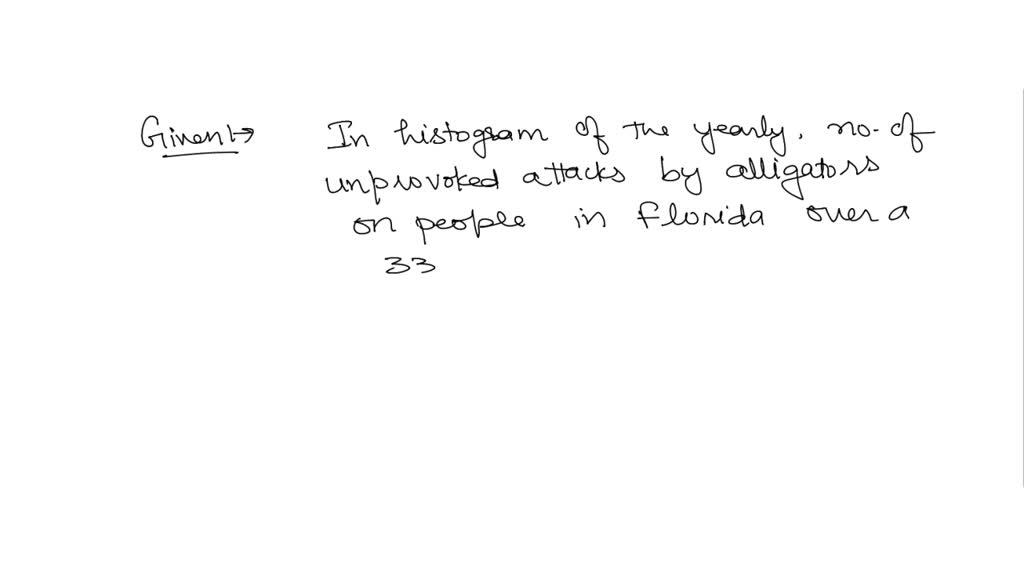 Given↦ In histogram of the yearly, no. of
unprovoked attacks by alligators
on people in florida over a
33